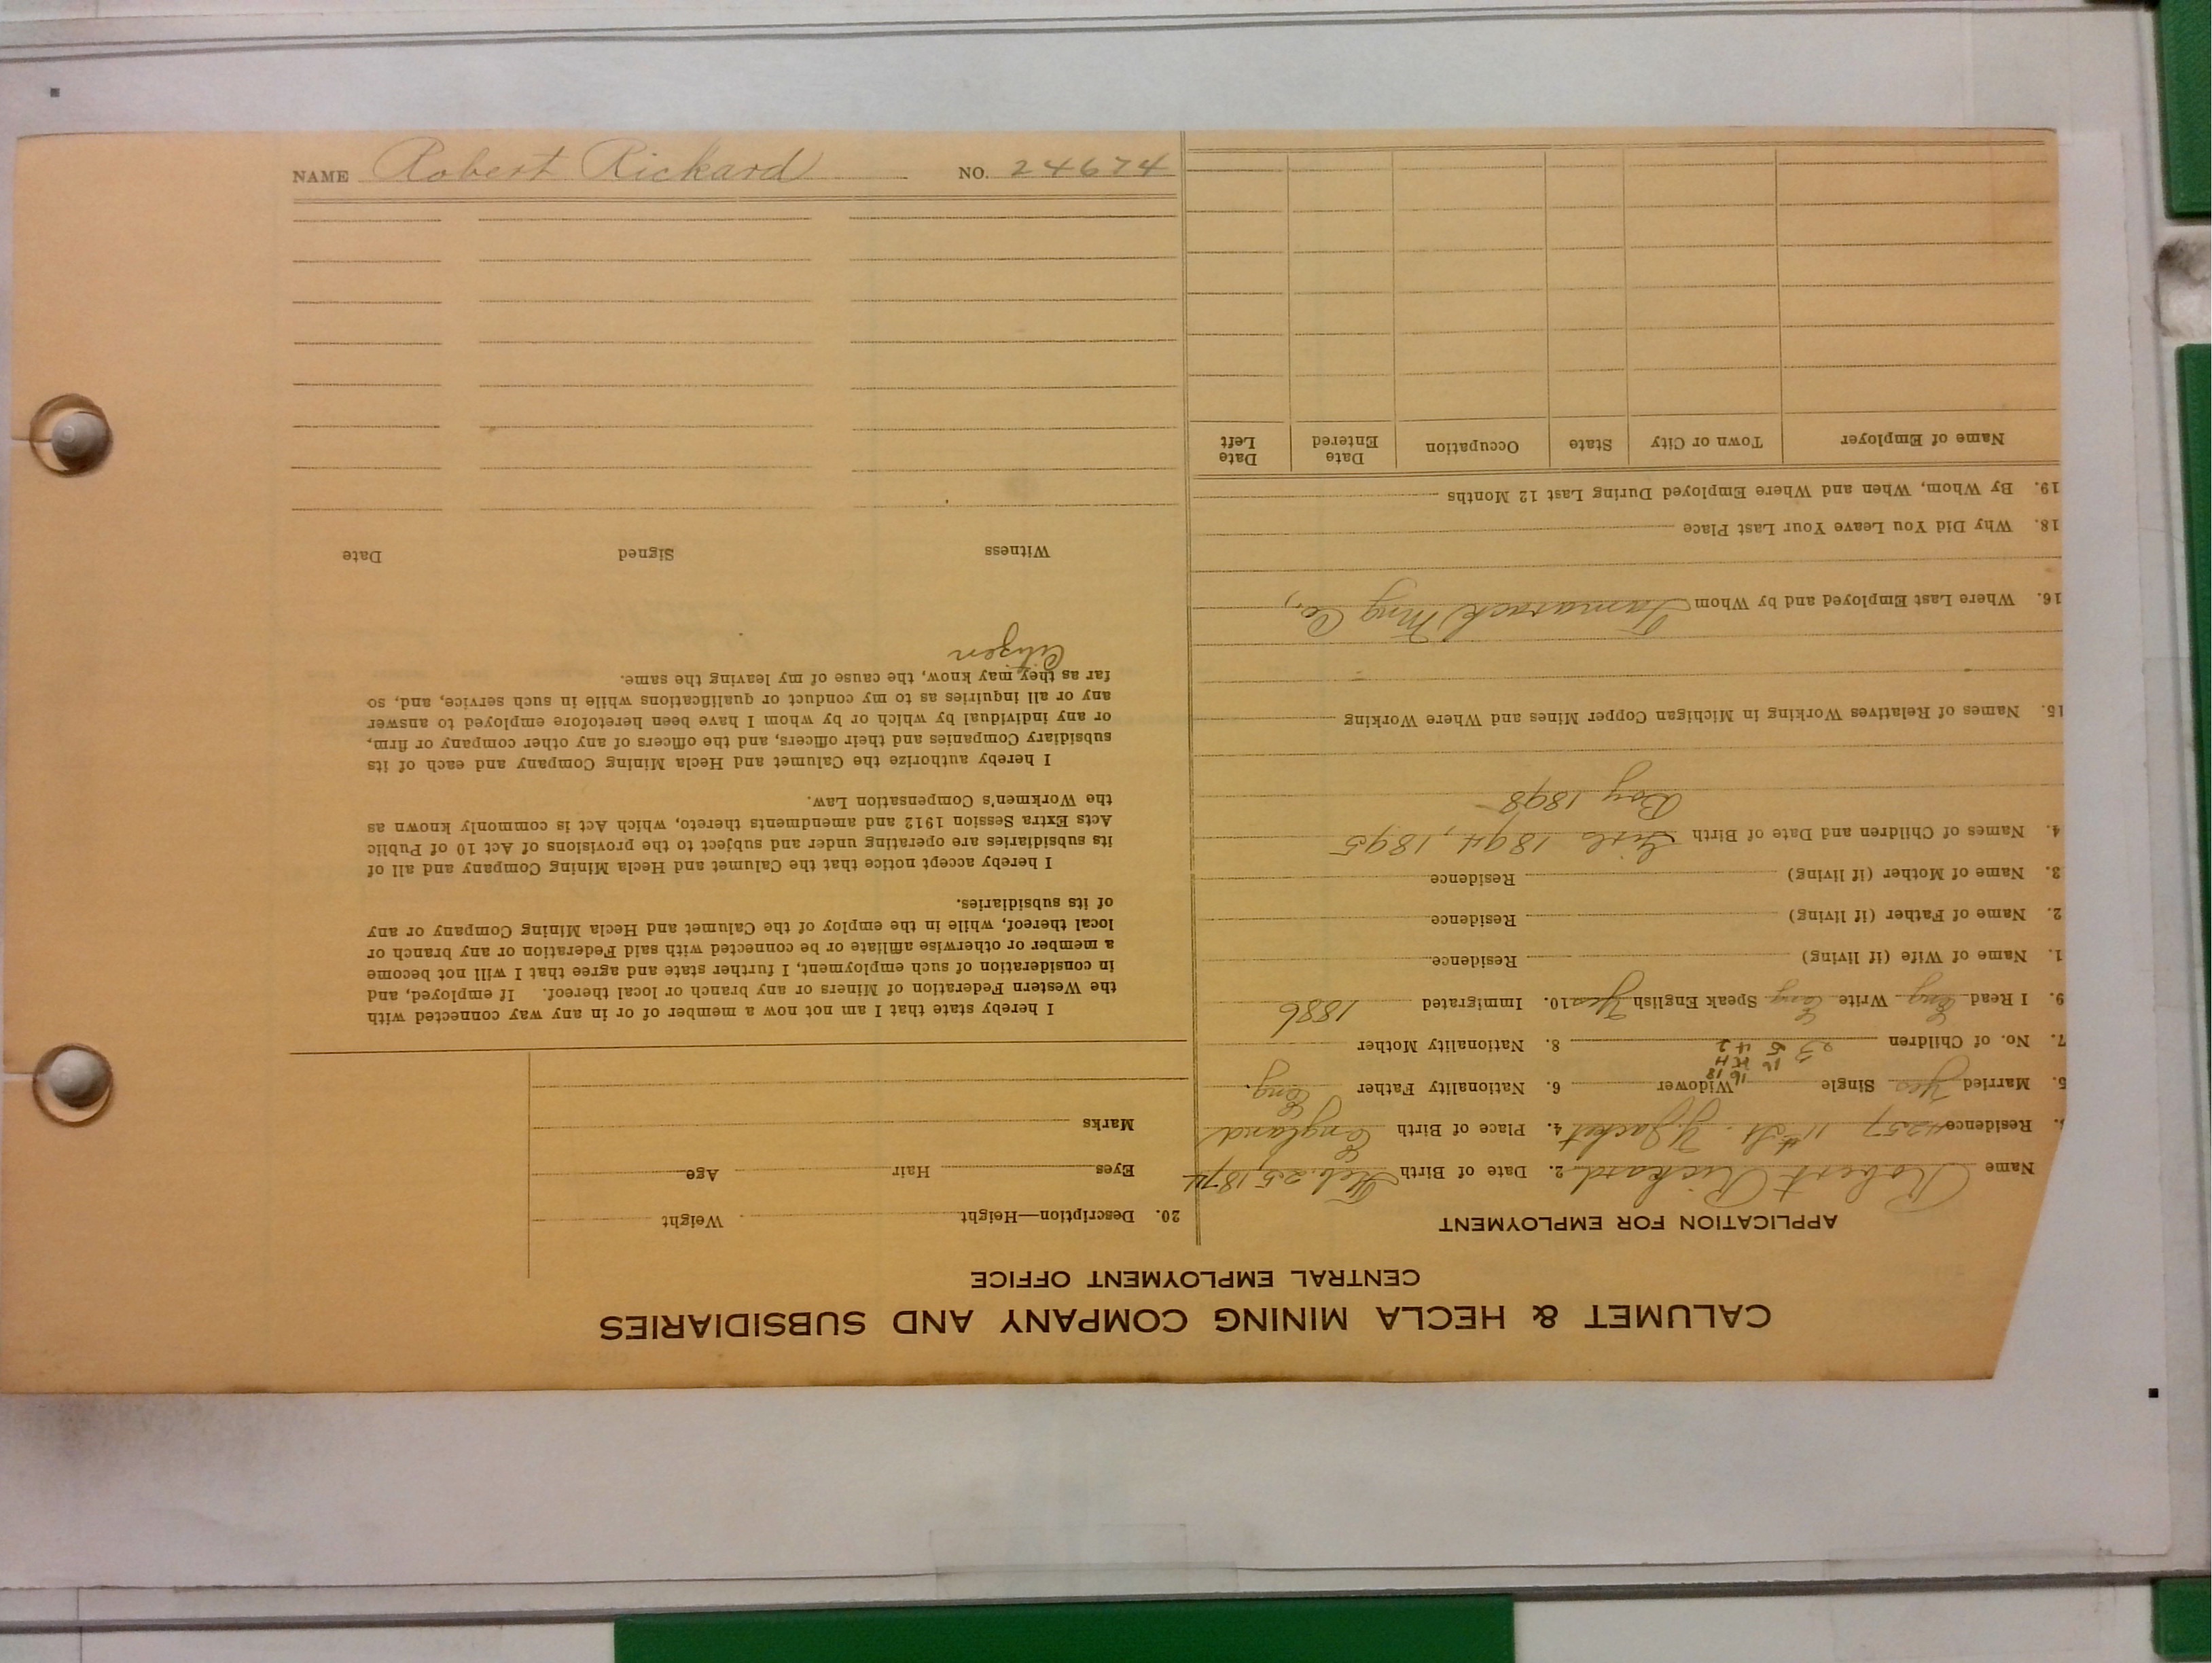 NAME Robert Rickard NO. 24674
CALUMET & HECLA MINING COMPANY AND SUBSIDIARIES
CENTRAL EMPLOYMENT OFFICE
APPLICATION FOR EMPLOYMENT
Name Robert Rickard 2. Date of Birth Feb. 25, 1874
Residence 4257 11th St. Y. Jacket 4. Place of Birth England
5. Married Yes Single Widower 6. Nationality Father Eng.
16 18
16 H H
7. No. of Children 3 5 4 2 8. Nationality Mother
9. I Read Eng Write Eng Speak English Yes 10. Immigrated 1886
1. Name of Wife (if living) Residence
2. Name of Father (if living) Residence
3. Name of Mother (if living) Residence
4. Names of Children and Date of Birth Girls 1894, 1895
Boy 1898
15. Names of Relatives Working in Michigan Copper Mines and Where Working
16. Where Last Employed and by Whom Tamarack Mng Co.,
18. Why Did You Leave Your Last Place
19. By Whom, When and Where Employed During Last 12 Months
Name of Employer Town or City State Occupation Date Entered Date Left
20. Description—Height Weight
Eyes Hair Age
Marks
I hereby state that I am not now a member of or in any way connected with
the Western Federation of Miners or any branch or local thereof. If employed, and
in consideration of such employment, I further state and agree that I will not become
a member or otherwise affiliate or be connected with said Federation or any branch or
local thereof, while in the employ of the Calumet and Hecla Mining Company or any
of its subsidiaries.
I hereby accept notice that the Calumet and Hecla Mining Company and all of
its subsidiaries are operating under and subject to the provisions of Act 10 of Public
Acts Extra Session 1912 and amendments thereto, which Act is commonly known as
the Workmen's Compensation Law.
I hereby authorize the Calumet and Hecla Mining Company and each of its
subsidiary Companies and their officers, and the officers of any other company or firm,
or any individual by which or by whom I have been heretofore employed to answer
any or all inquiries as to my conduct or qualifications while in such service, and, so
far as they may know, the cause of my leaving the same.
Citizen
Witness Signed Date